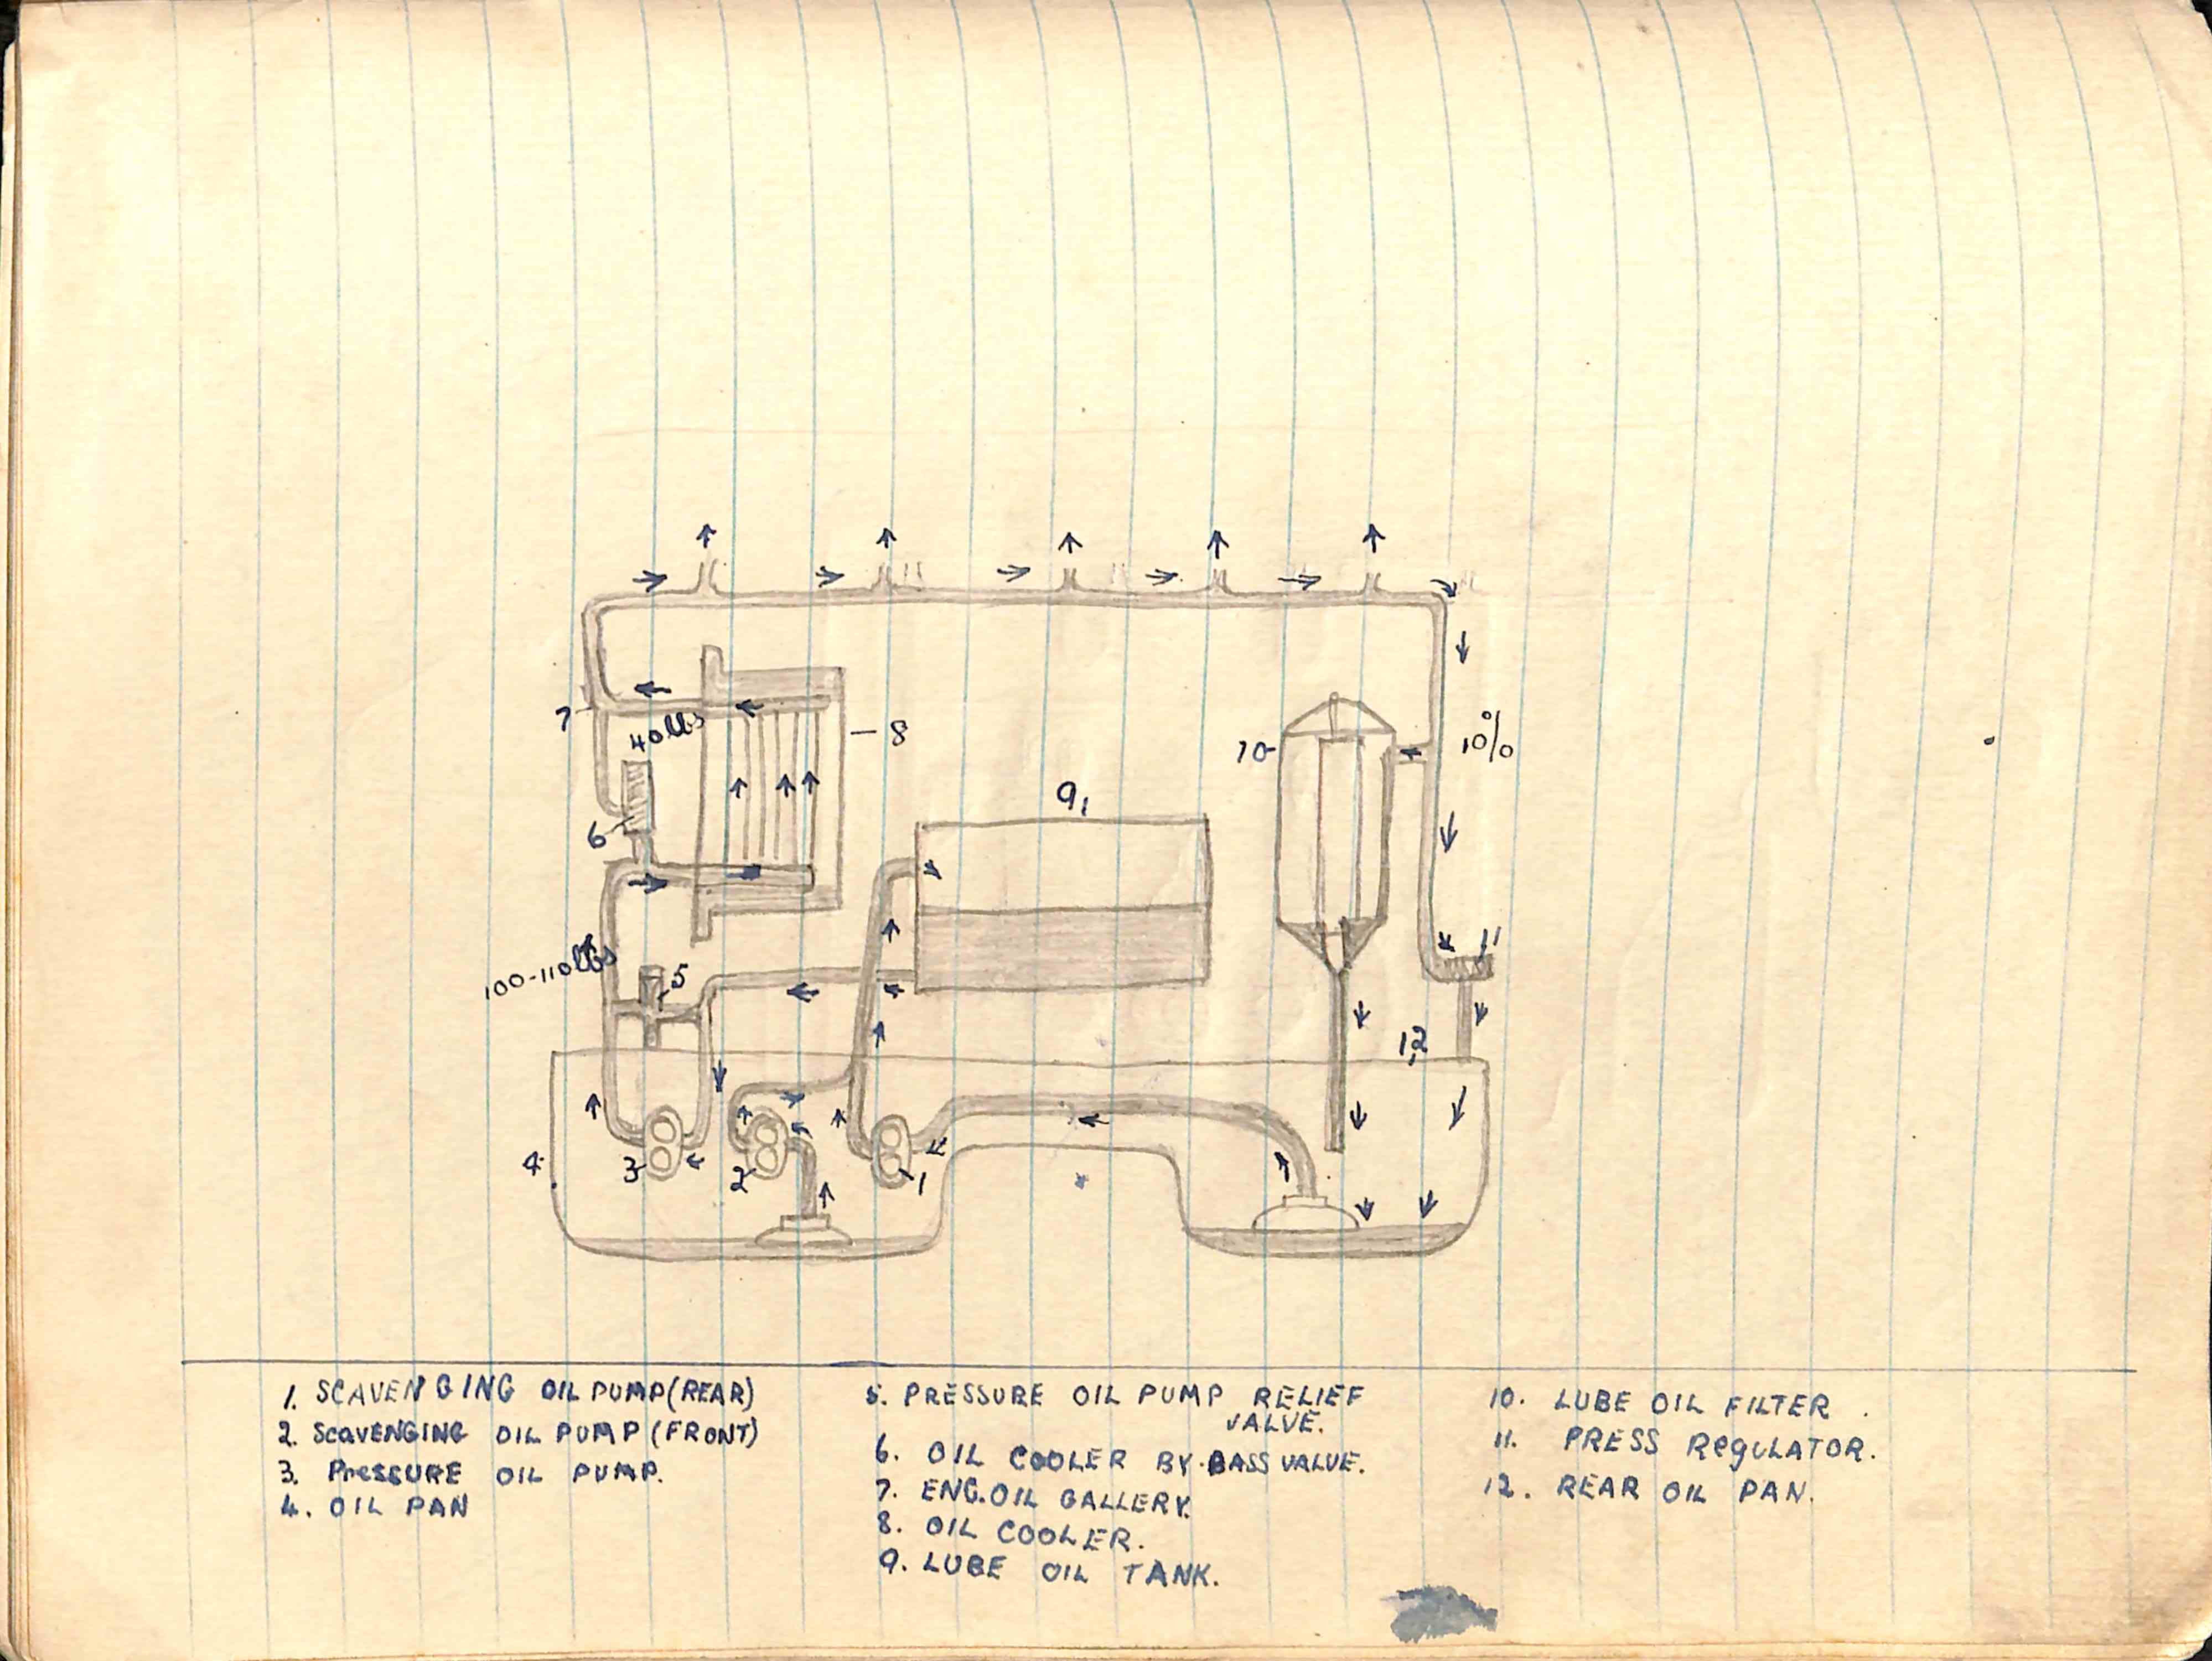 7
40lbs
8
10
10%
9,
6
11
100-110lbs
5
12
4
3
2
1
1. SCAVENGING OIL PUMP(REAR)
2. SCAVENGING OIL PUMP (FRONT)
3. PRESSURE OIL PUMP.
4. OIL PAN
5. PRESSURE OIL PUMP RELIEF
VALVE.
6. OIL COOLER BY.BASS VALVE.
7. ENG.OIL GALLERY.
8. OIL COOLER.
9. LUBE OIL TANK.
10. LUBE OIL FILTER.
11. PRESS REgULATOR.
12. REAR OIL PAN.